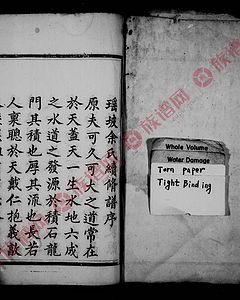 瑤坡余氏續脩譜序
原夫可久可大之道常在
於天蓋天一生水地六成
之水道之發源於積石龍
門其積也厚其流也長若
人裏聰於天戴仁抱義敦
Whole Volume
Water Damage
Torn paper
Tight Binding
族譜网